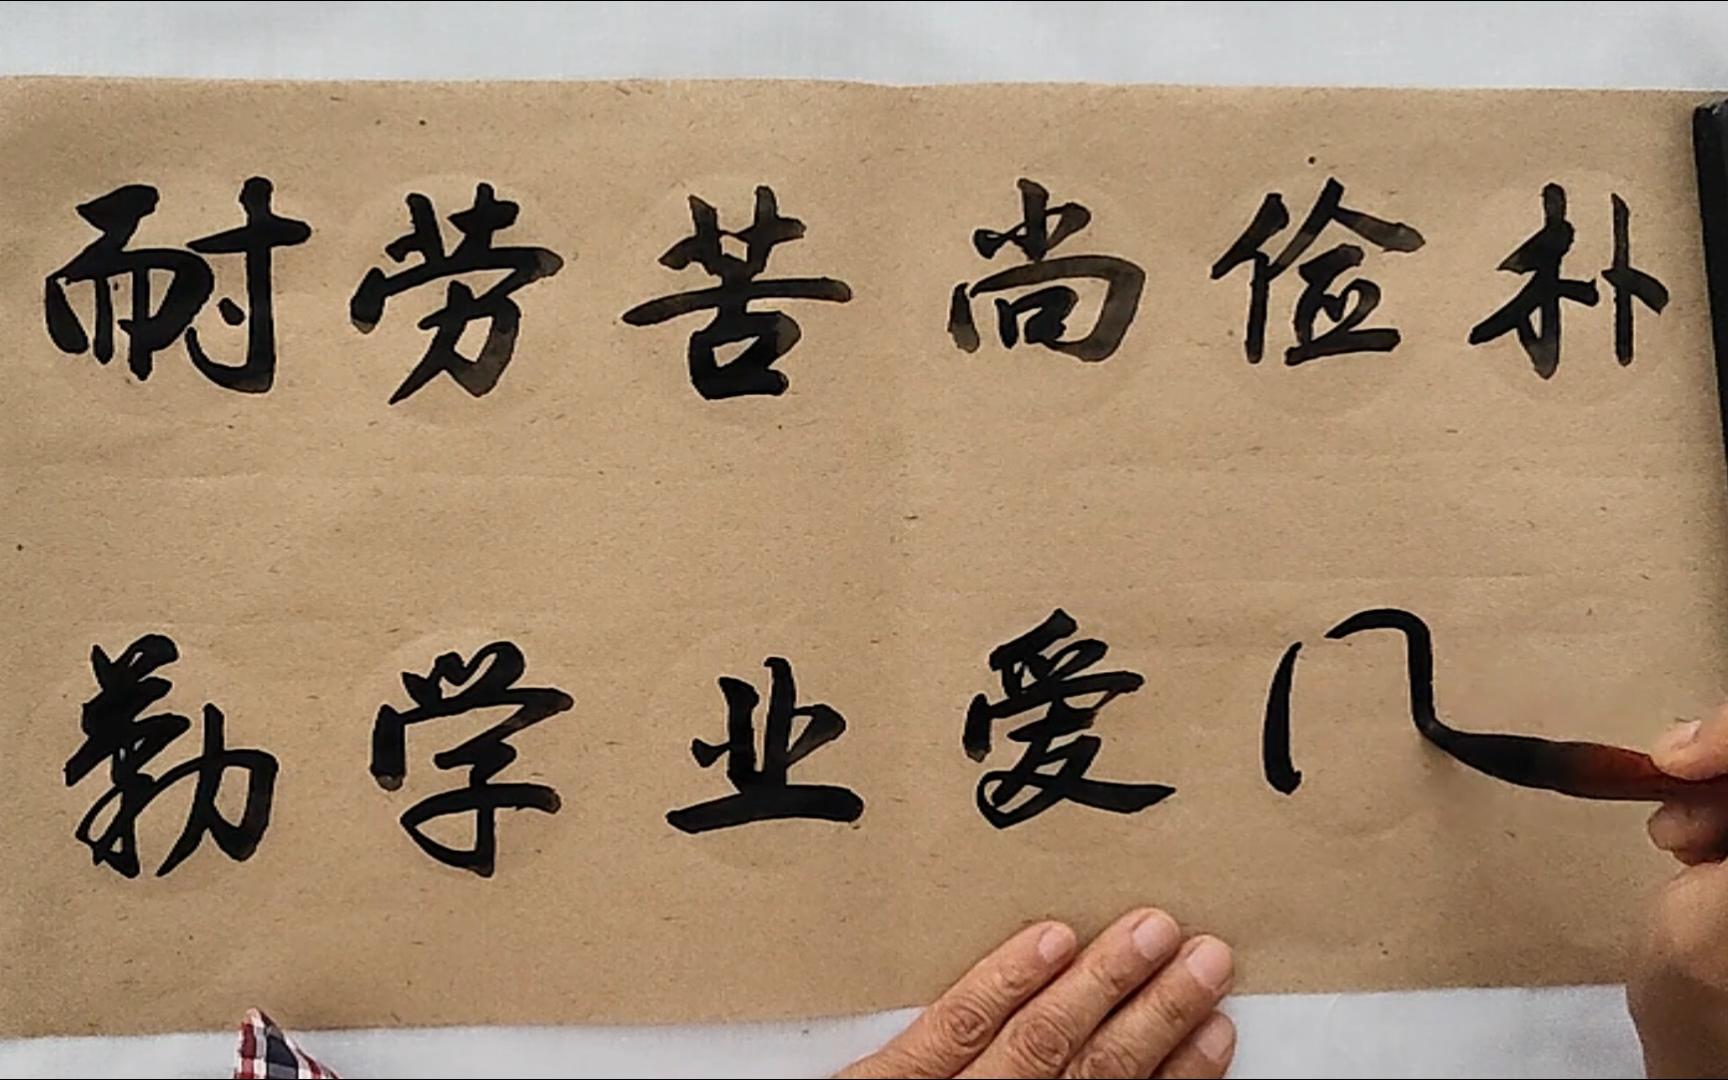 耐劳苦尚俭朴
勤学业爱